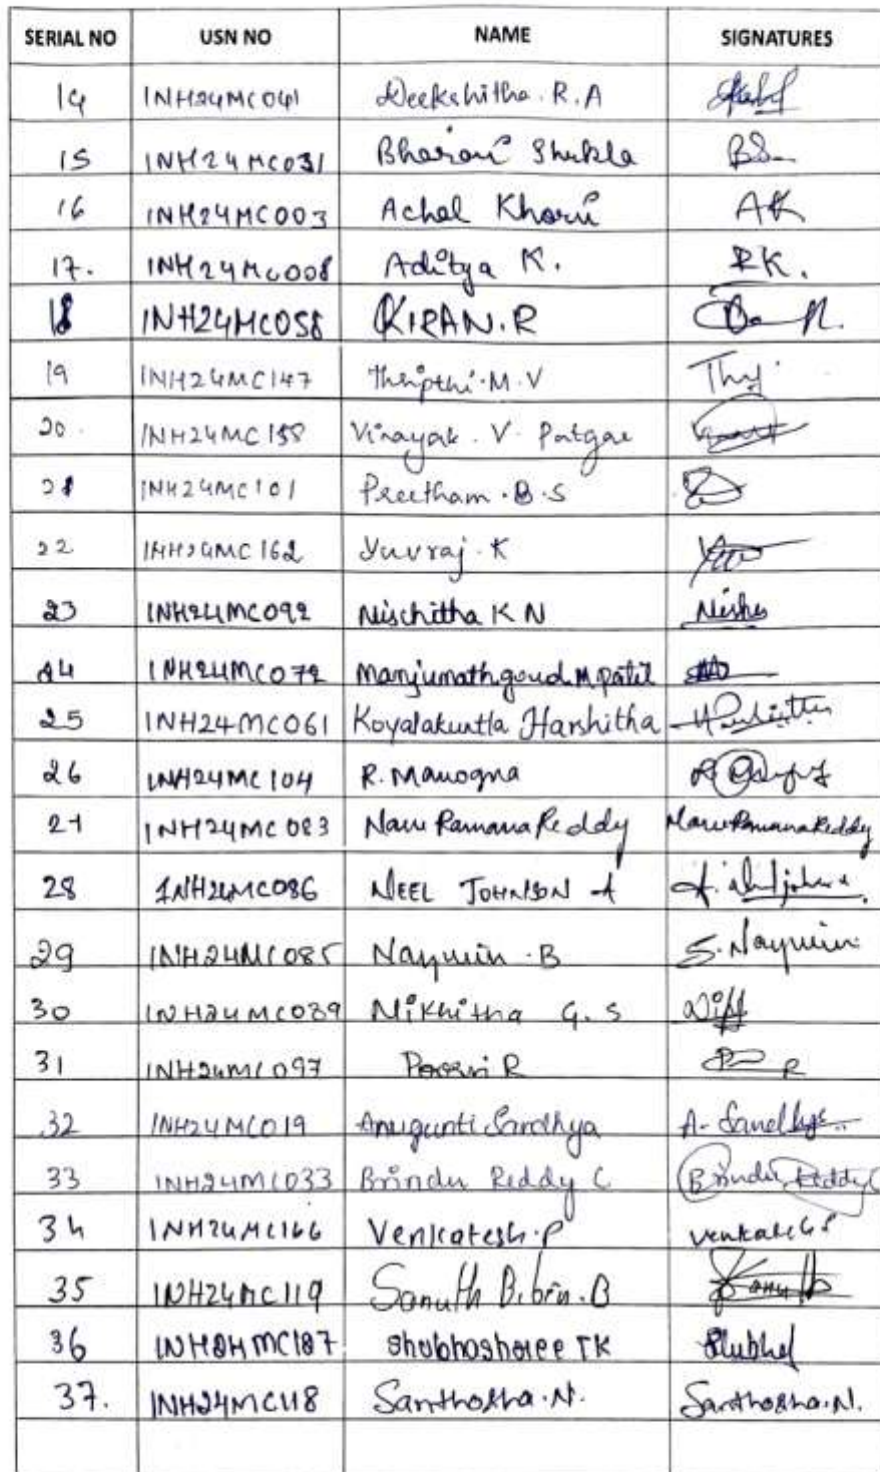 SERIAL NO USN NO NAME SIGNATURES
14 1NH24MC041 Deekshitha. R. A
15 1NH24MC031 Bharani Shukla BS
16 1NH24MC003 Achal Kharvi AK
17. 1NH24MC008 Aditya K. RK.
18 1NH24MC058 KIRAN. R
19 1NH24MC147 Thripthi. M. V Thy
20. 1NH24MC158 Vinayak. V. Patgar
21 1NH24MC101 Preetham. B. S
22 1NH24MC162 Yuvraj. K
23 1NH24MC092 Nischitha K N
24 1NH24MC072 Manjunathgoud. M patil
25 1NH24MC061 Koyalakuntla Harshitha Harshitha
26 1NH24MC104 R. Manogna
27 1NH24MC083 Naru Ramana Reddy Naru Ramana Reddy
28 1NH24MC086 NEEL JOHNSON A
29 1NH24MC085 Naymin. B S. Naymin
30 1NH24MC089 Nikhitha G. S
31 1NH24MC097 R
32 1NH24MC019 Anugunti Sandhya A. Sandhya
33 1NH24MC033 Brindu Reddy C Brindu Reddy C
34 1NH24MC166 Venkatesh. P Venkatesh
35 1NH24MC119 Sanuth Bibin. B Sanuth
36 1NH24MC187 Shubhashree TK
37. 1NH24MC118 Santhosha. N. Santhosha. N.